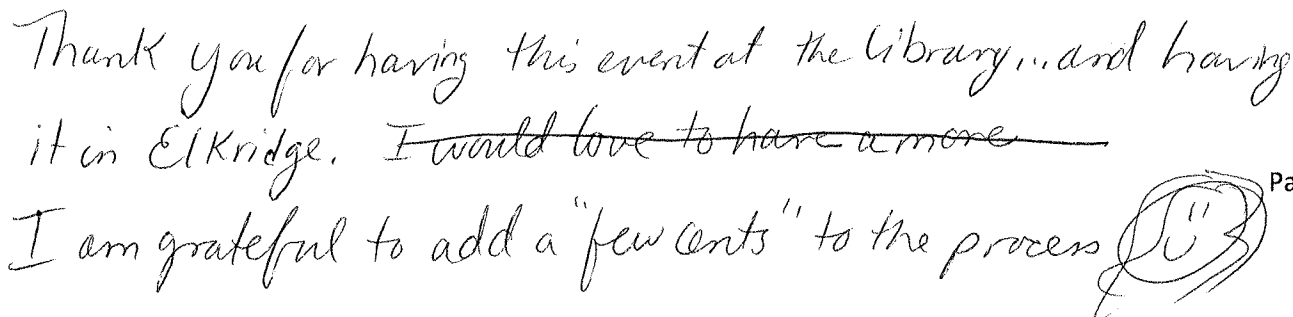 Thank you for having this event at the library...and having
it in ElKridge. I would love to have a more
Pa
I am grateful to add a "few cents" to the process